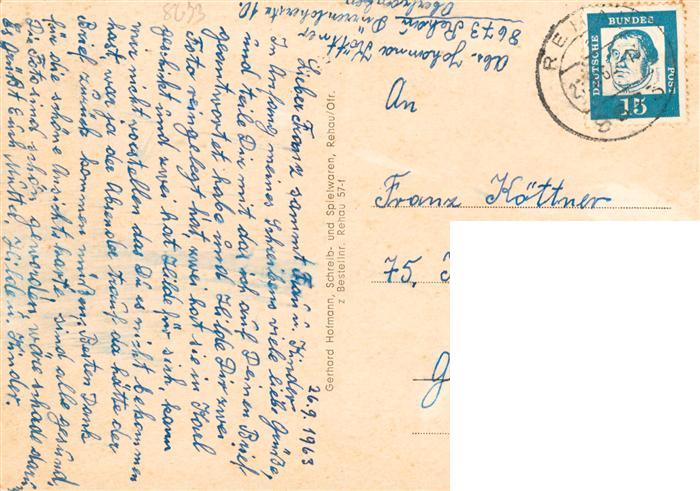 8243
Abs. Johanna Köttner
8673 Rehau
Dürrenlohestr 10
Oberfranken
26.9.1963
Lieber Franz sammt Frau u. Kinder
In Anfang meines Schreibens viele liebe Grüße,
und teile Dir mit das ich auf Deinen Brief
geantwortet habe und Hilde Dir zwei
Foto reingelegt hat, zwei hat sie in Karl
geschickt und zwei hat Hilde für sich, kann
mir nicht vorstellen das Du es nicht bekommen
hast, war ja der Absender drauf da hätte der
Brief zurück kommen müßen. Besten Dank
für die schöne Ansichtskarte sind alle gesund,
Die Foto sind schön geworden wäre schade darum
Es grüßt Euch Mutter, Hilde u. Kinder.
Gerhard Hofmann, Schreib- und Spielwaren, Rehau/Ofr.
z Bestellnr. Rehau 57-f
DEUTSCHE
BUNDES
POST
15
REHAU
An
Franz Köttner
75,